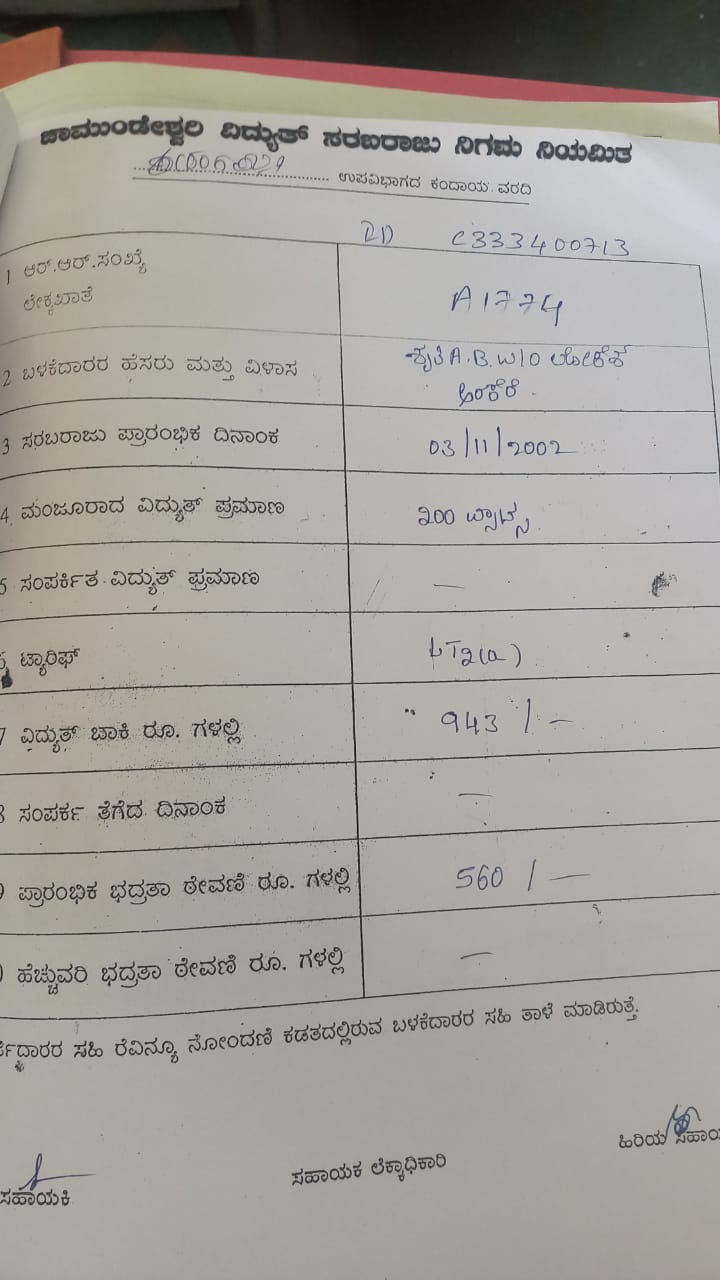 ಚಾಮುಂಡೇಶ್ವರಿ ವಿದ್ಯುತ್ ಸರಬರಾಜು ನಿಗಮ ನಿಯಮಿತ
ಉಪವಿಭಾಗದ ಕಂದಾಯ ವರದಿ
C333400713
1 ಆರ್.ಆರ್.ಸಂಖ್ಯೆ
ಲೆಕ್ಕಖಾತೆ
A1774
2 ಬಳಕೆದಾರರ ಹೆಸರು ಮತ್ತು ವಿಳಾಸ
ಶೃತಿ A.B. W/O ಲೋಕೇಶ
ಅಂಕೆರೆ
3 ಸರಬರಾಜು ಪ್ರಾರಂಭಿಕ ದಿನಾಂಕ
03/11/2002
4 ಮಂಜೂರಾದ ವಿದ್ಯುತ್ ಪ್ರಮಾಣ
200 ವ್ಯಾಟ್ಸ್
5 ಸಂಪರ್ಕಿತ ವಿದ್ಯುತ್ ಪ್ರಮಾಣ
—
ಟ್ಯಾರಿಫ್
LT2(a)
7 ವಿದ್ಯುತ್ ಬಾಕಿ ರೂ. ಗಳಲ್ಲಿ
943/—
ಸಂಪರ್ಕ ತೆಗೆದ ದಿನಾಂಕ
—
ಪ್ರಾರಂಭಿಕ ಭದ್ರತಾ ಠೇವಣಿ ರೂ. ಗಳಲ್ಲಿ
560/—
ಹೆಚ್ಚುವರಿ ಭದ್ರತಾ ಠೇವಣಿ ರೂ. ಗಳಲ್ಲಿ
—
ಸಹಿ ರೆವಿನ್ಯೂ ನೋಂದಣಿ ಕಡತದಲ್ಲಿರುವ ಬಳಕೆದಾರರ ಸಹಿ ತಾಳೆ ಮಾಡಿರುತ್ತೆ.
ಸಹಾಯಕಿ
ಸಹಾಯಕ ಲೆಕ್ಕಾಧಿಕಾರಿ
ಹಿರಿಯ